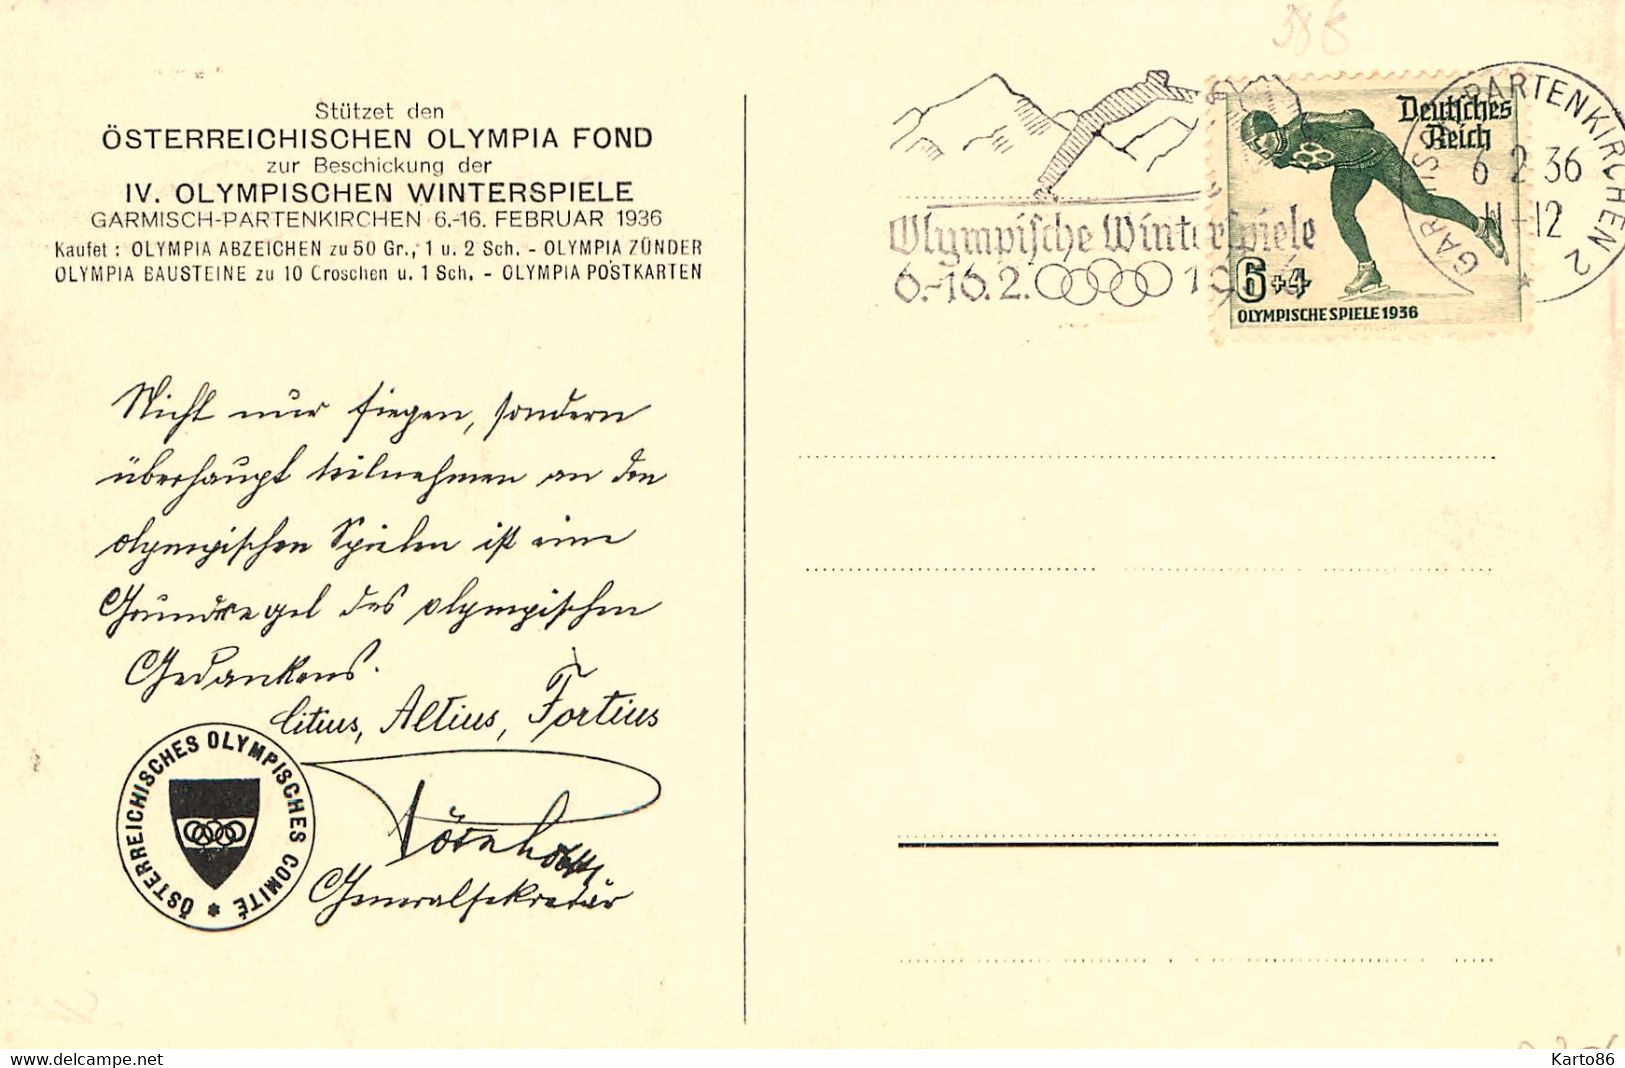 Stützet den
ÖSTERREICHISCHEN OLYMPIA FOND
zur Beschickung der
IV. OLYMPISCHEN WINTERSPIELE
GARMISCH-PARTENKIRCHEN 6.-16. FEBRUAR 1936
Kaufet : OLYMPIA ABZEICHEN zu 50 Gr., 1 u. 2 Sch. - OLYMPIA ZÜNDER
OLYMPIA BAUSTEINE zu 10 Groschen u. 1 Sch. - OLYMPIA POSTKARTEN
Nicht nur siegen, sondern
überhaupt teilnehmen an den
olympischen Spielen ist eine
Grundregel des olympischen
Gedankens.
Citius, Altius, Fortius
Generalsekretär
ÖSTERREICHISCHES OLYMPISCHES COMITÉ *
Olympische Winterspiele
6.-16.2. 1936
Deutsches
Reich
6+4
OLYMPISCHE SPIELE 1936
GARMISCH-PARTENKIRCHEN 2
6 2 36
11-12
*
delcampe.net
Karto86